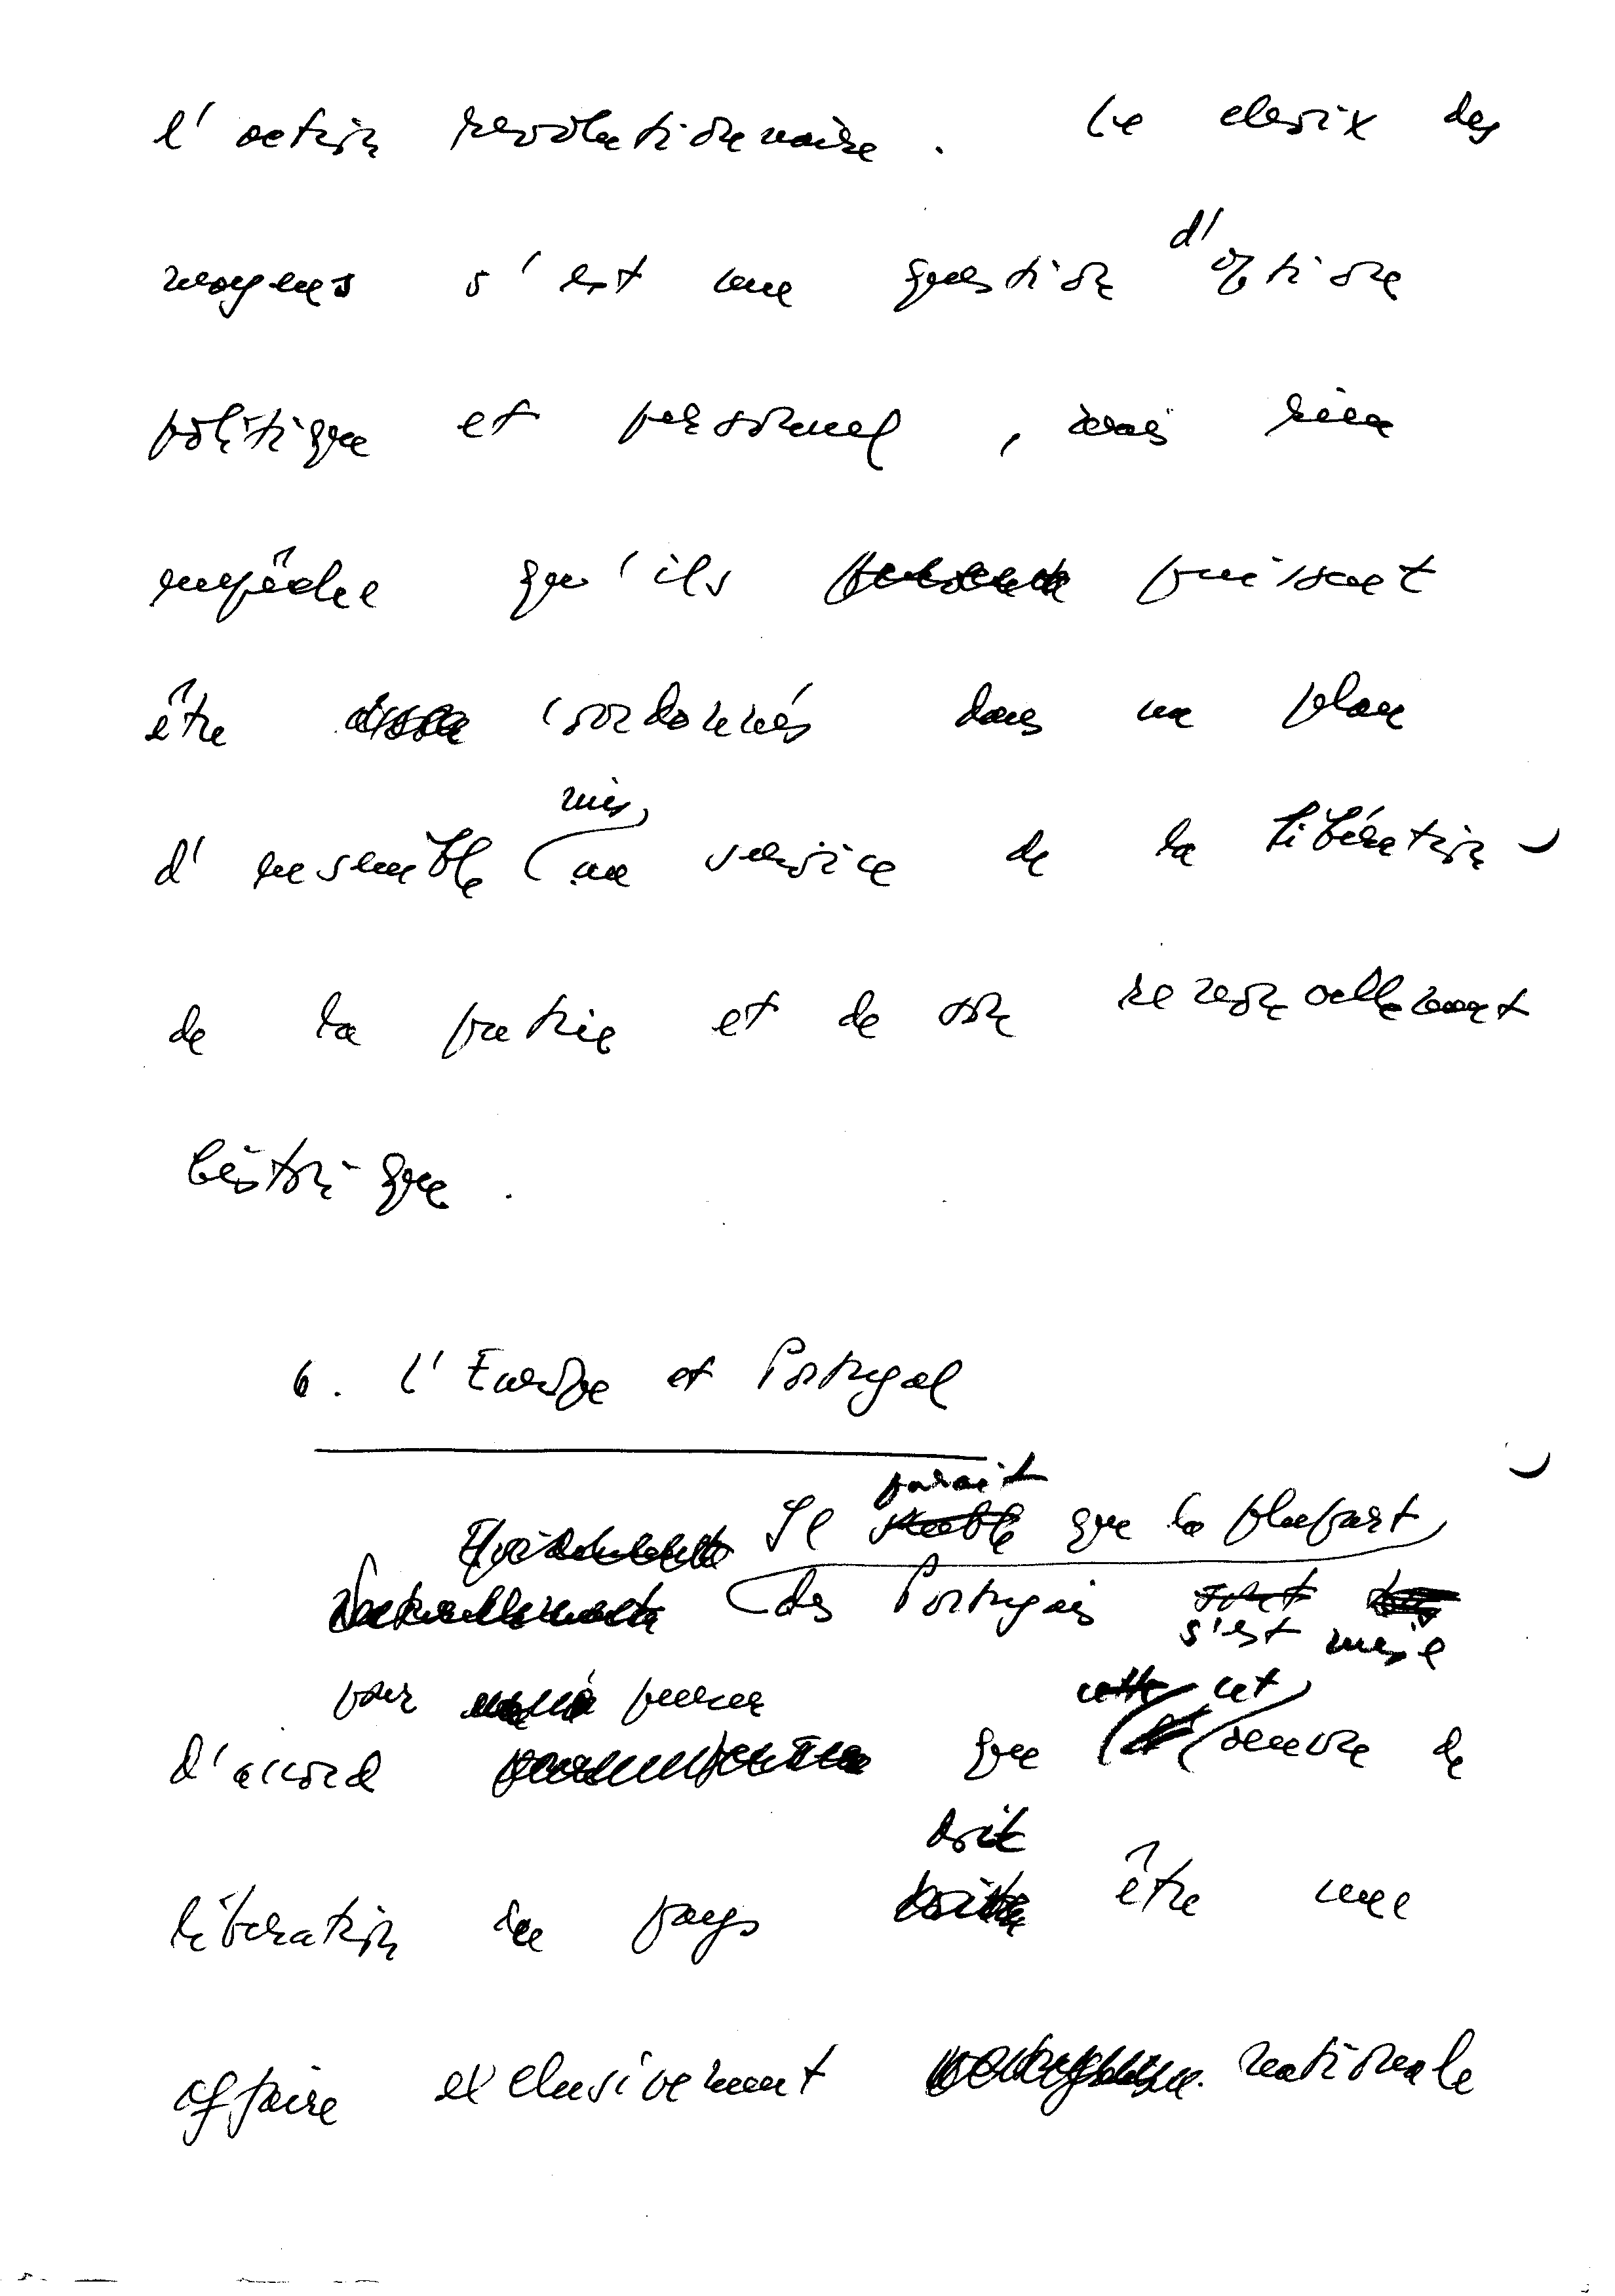 l'action revolutionnaire. Le choix des
moyens s'est une question d'option
politique et personnel, mais rien
empêche qu'ils puissent
être coordonnés dans un plan
d'ensemble mis au service de la libération
de la patrie et de son renouvellement
historique.
6. L'Europe et Portugal
Il parait que la plupart
des Portugais s'est mise
d'accord pour penser que cet oeuvre de
libération du pays doit être une
affaire exclusivement nationale